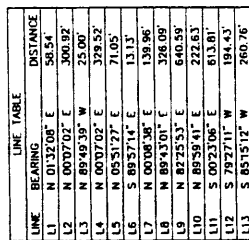 LINE TABLE
LINE BEARING DISTANCE
L1 N 01°32'08" E 58.54'
L2 N 00°07'02" E 300.92'
L3 N 89°49'39" W 25.00'
L4 N 00°07'02" E 329.52'
L5 N 05°51'27" E 71.05'
L6 S 89°57'14" E 13.13'
L7 N 00°08'38" E 139.96'
L8 N 89°43'01" E 326.09'
L9 N 82°25'53" E 640.59'
L10 N 89°59'41" E 222.63'
L11 S 00°23'06" E 613.81'
L12 S 79°27'11" W 194.43'
L13 S 85°15'12" W 260.76'